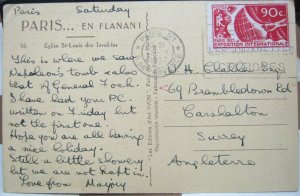 Paris Saturday
PARIS... EN FLANANT
56 Eglise St-Louis des Invalides
This is where we saw
Napoleon's tomb & also
that of General Foch.
I have had your P.C.
written on Friday but
not the first one.
Hope you are all having
a nice holiday.
Still a little showery
but we are not kept in.
Love from Marjory
90c
PARIS 1937
EXPOSITION INTERNATERNATIONALE
69 Brambledown Rd
Carshalton
Surrey
Angleterre